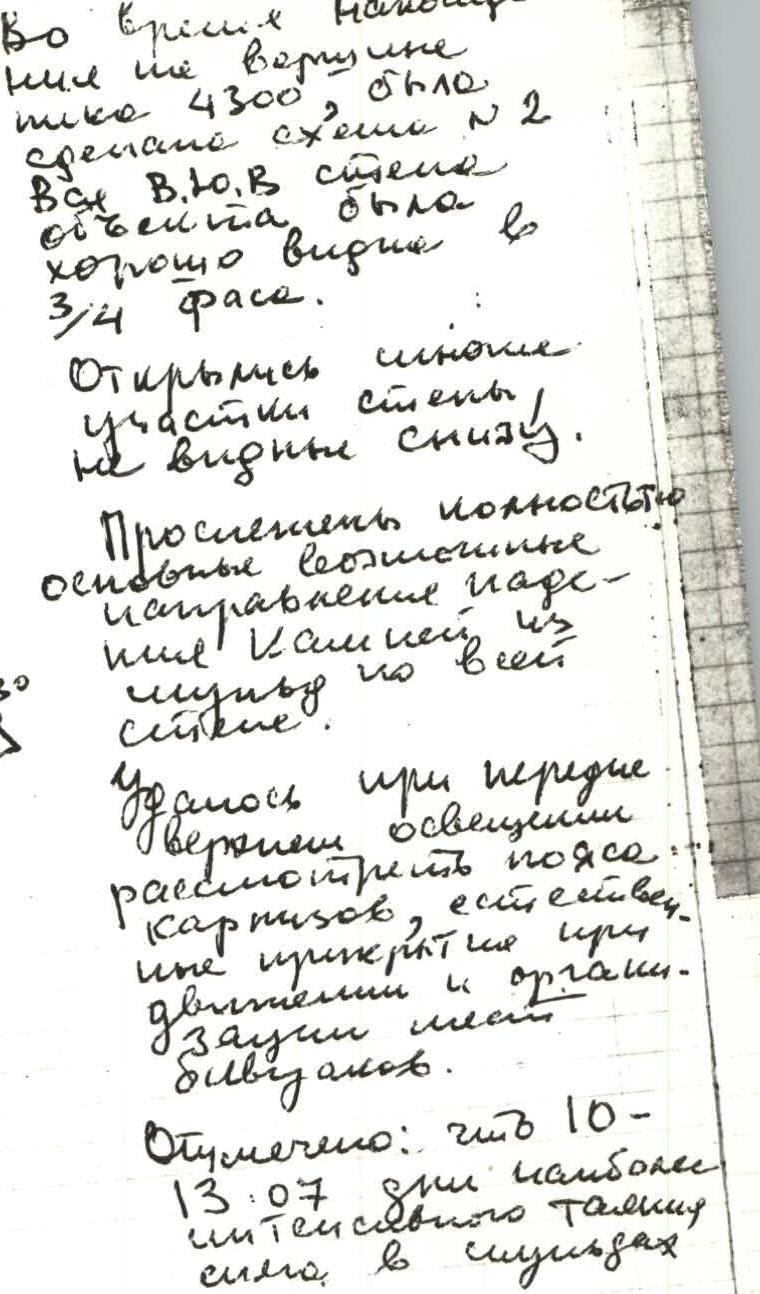 Во время нахожде-
ния на вершине
пика 4300, была
сделана схема N 2
Вся В.Ю.В стена
объекта была
хорошо видна в
3/4 фаса.
Открылись многие
участки стены,
не видные снизу.
Прослежены полностью
основные возможные
направления паде-
ния камней из
мульд по всей
стене.
Удалось при передне
верхнем освещении
рассмотреть пояса
карнизов, естествен-
ные прикрытие при
движении и органи-
зации мест
бивуаков.
Отмечено: что 10-
13.07 дни наиболее
интенсивного таяния
снега в мульдах